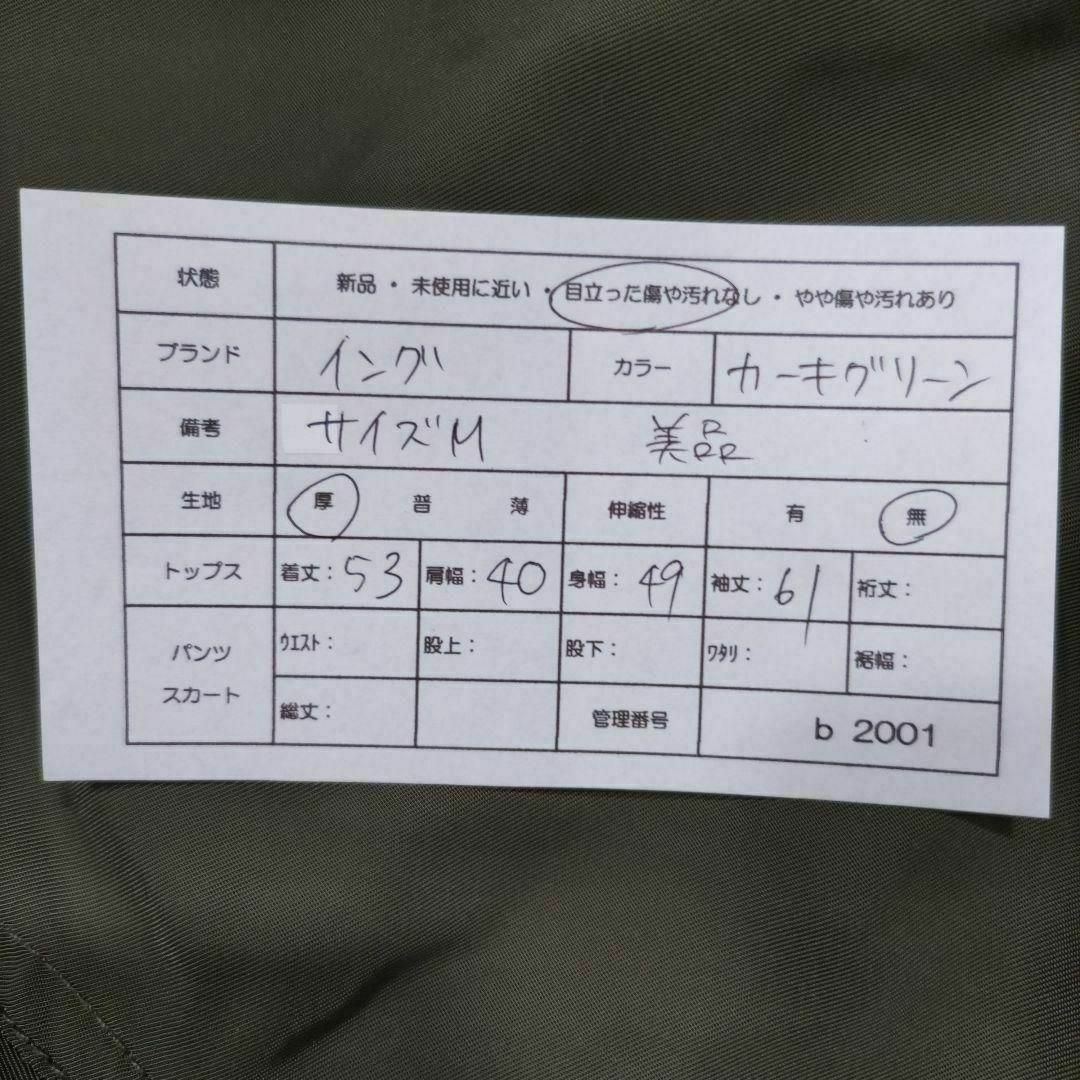 状態 新品・未使用に近い・目立った傷や汚れなし・やや傷や汚れあり
ブランド イング カラー カーキグリーン
備考 サイズM 美品
生地 厚 普 薄 伸縮性 有 無
トップス 着丈：53 肩幅：40 身幅：49 袖丈：61 裄丈：
パンツ スカート ｳｴｽﾄ： 股上： 股下： ﾜﾀﾘ： 裾幅：
総丈： 管理番号 b 2001